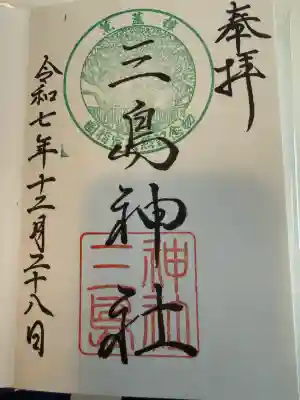 奉拝
三島神社
神社
三島
令和七年十二月二十八日